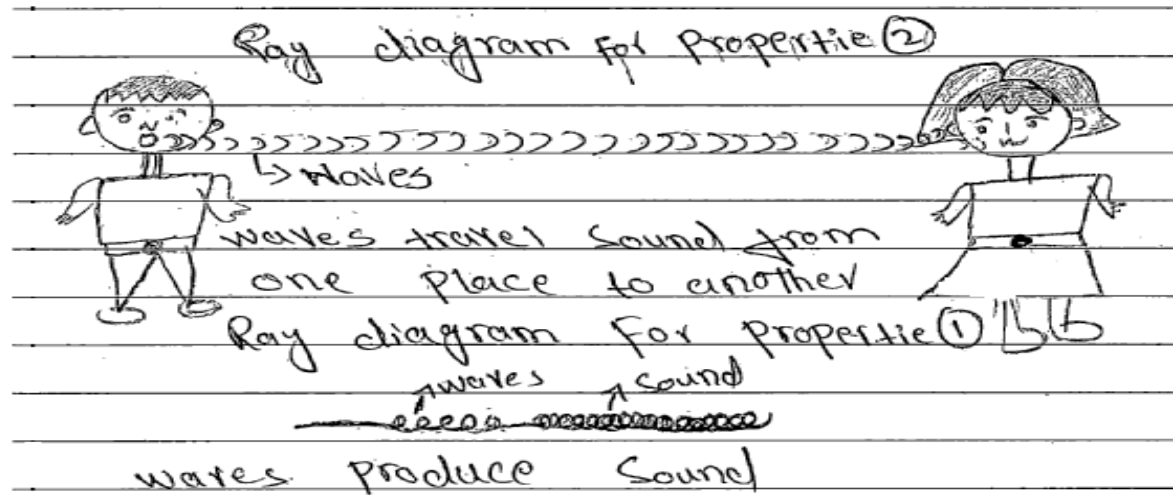 Ray diagram for Propertie ②
↳ waves
waves travel sound from
one place to another
Ray diagram For propertie ①
waves sound
waves produce sound